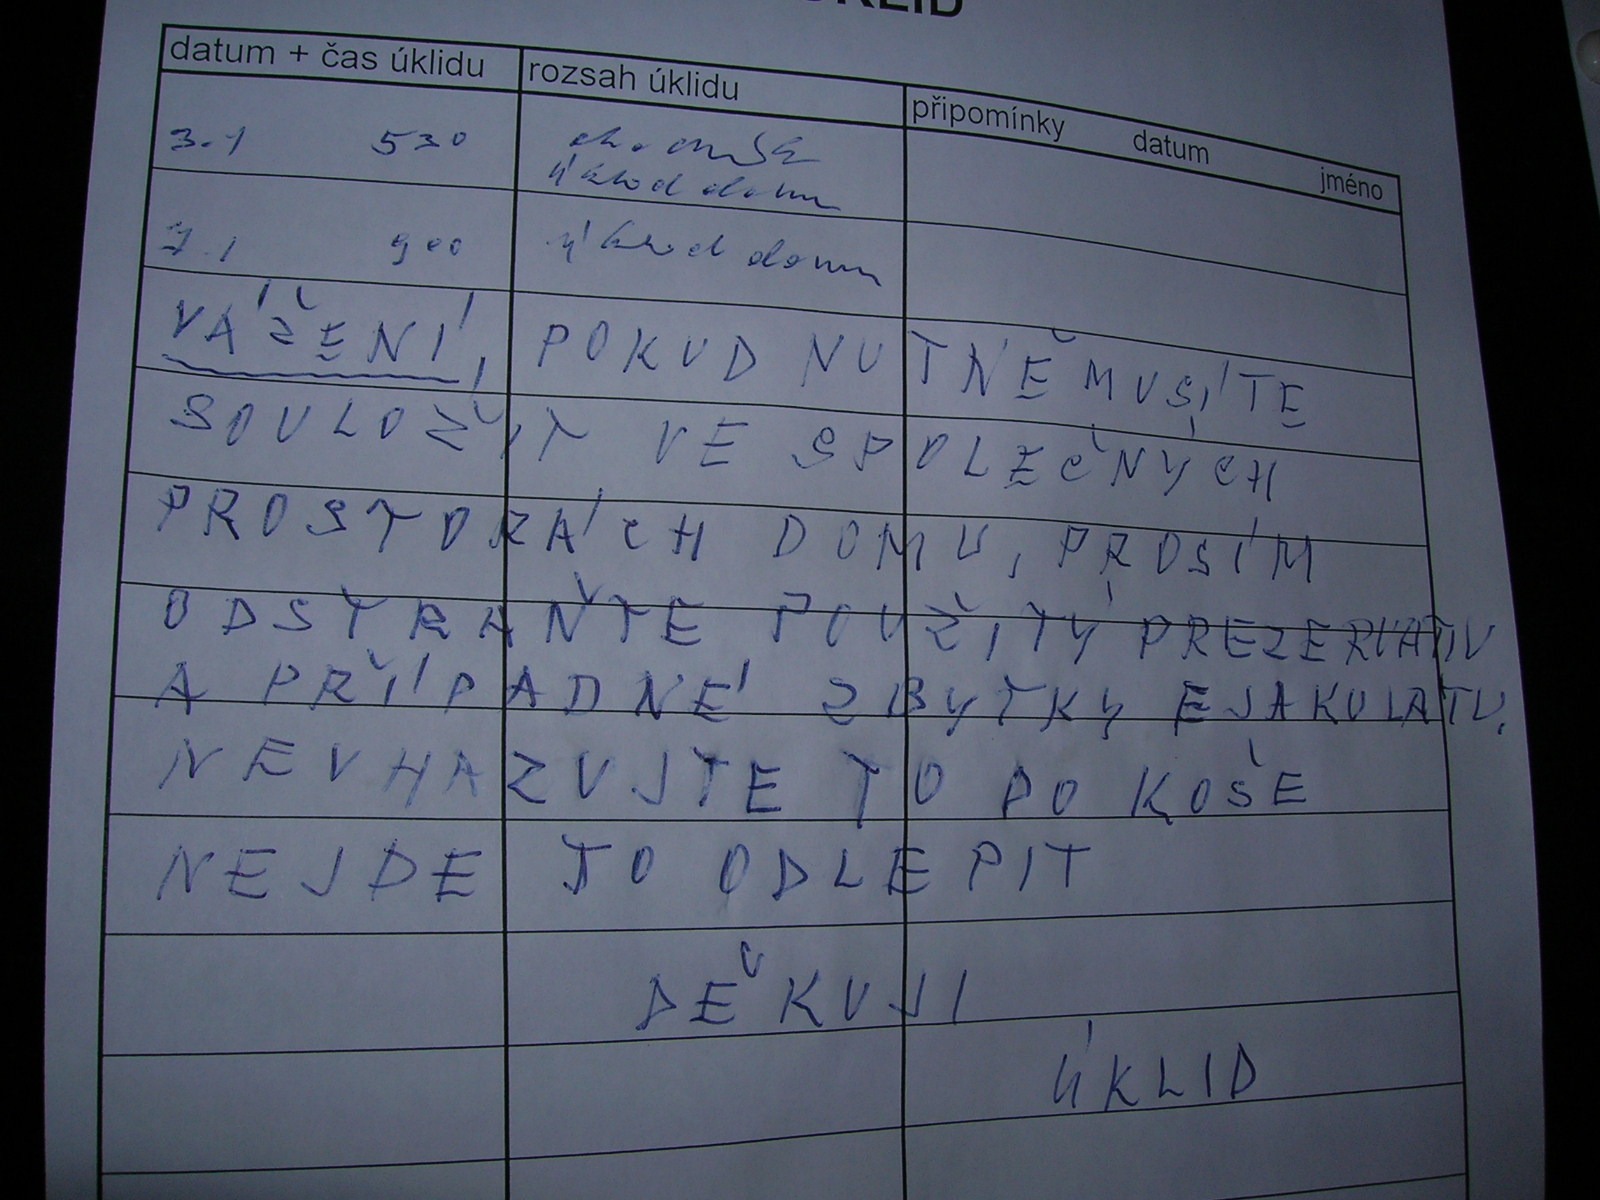 ÚKLID
datum + čas úklidu rozsah úklidu připomínky datum jméno
3.1 530 chodník
úklid domu
7.1 900 úklid domu
VÁŽENÍ, POKUD NUTNĚ MUSÍTE
SOULOŽIT VE SPOLEČNÝCH
PROSTORÁCH DOMU, PROSÍM
ODSTRAŇTE POUŽITÝ PREZERVATIV
A PŘÍPADNÉ ZBYTKY EJAKULATU.
NEVHAZUJTE TO DO KOŠE
NEJDE TO ODLEPIT
DĚKUJI
ÚKLID